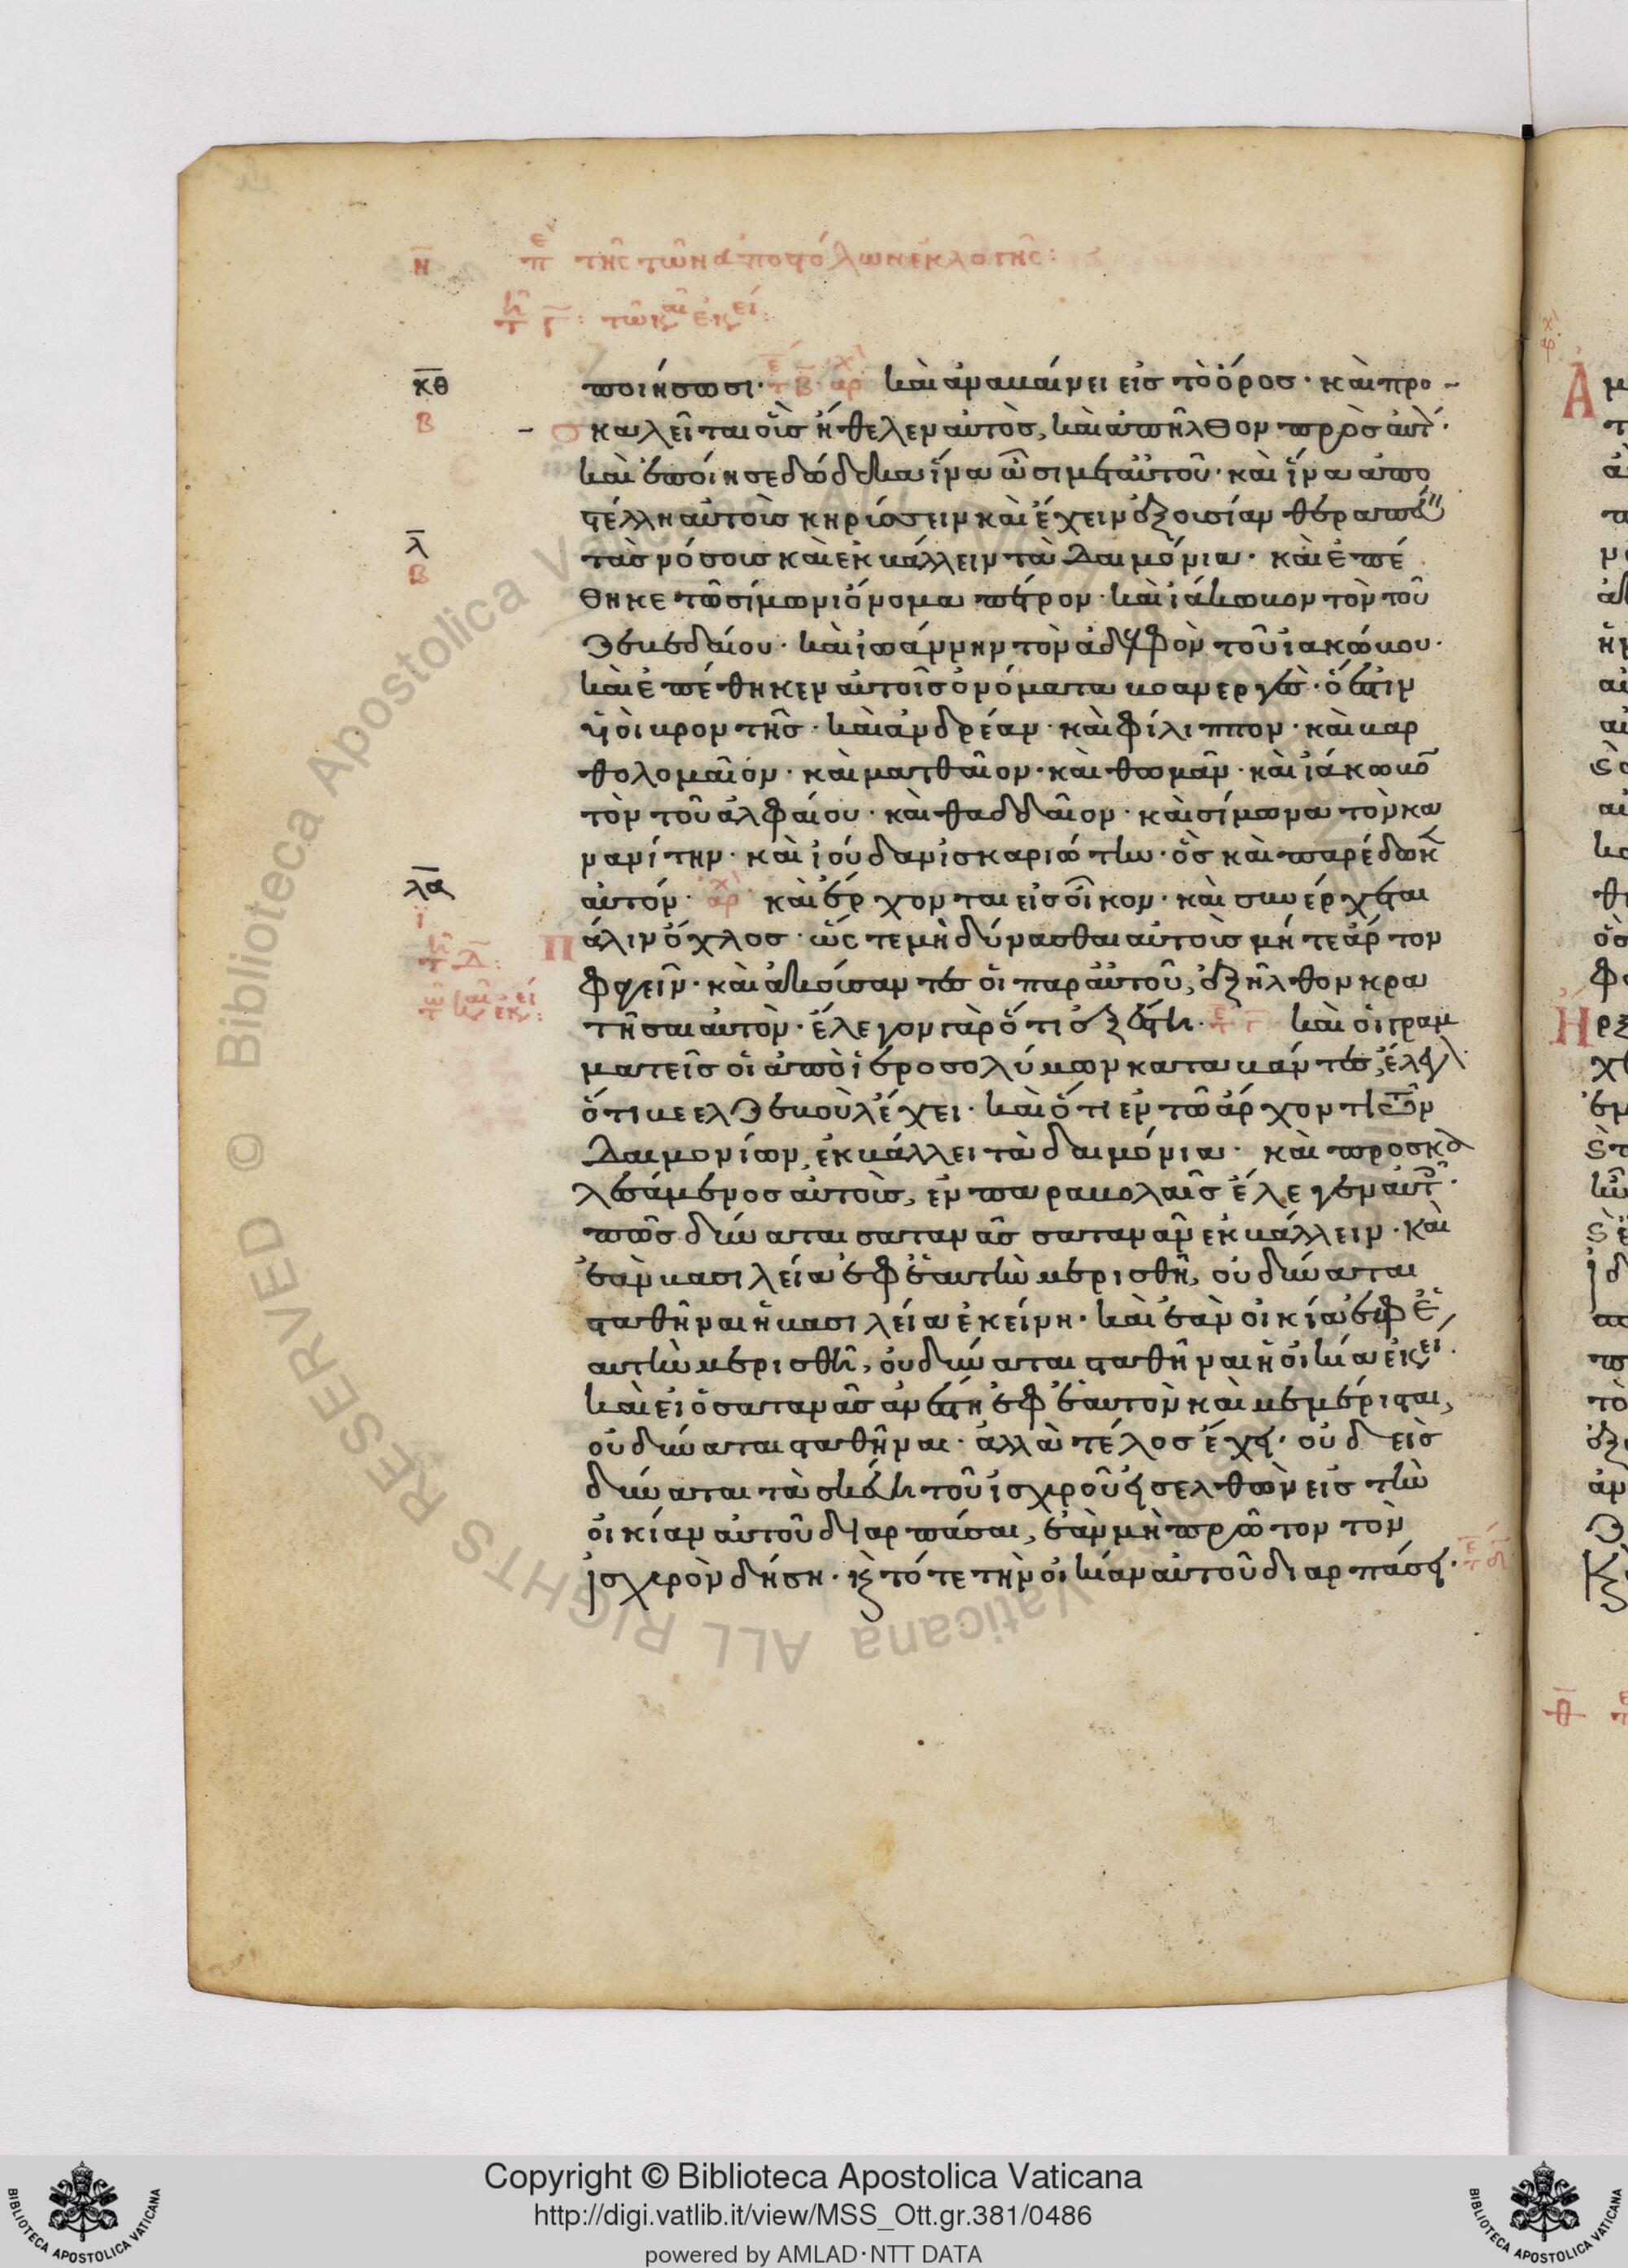 η̄ πε τῆς τῶν ἀποστόλων ἐκλογῆς:
κθ ποιήσωσι· τε β̄ αρχ καὶ ἀναβαίνει εἰς τὸ ὄρος· καὶ προ-
β καλεῖται οὓς ἤθελεν αὐτὸς, καὶ ἀπῆλθον πρὸς αὐτ́·
καὶ ἐποίησε δώδεκα ἵνα ὦσι μετ αὐτοῦ· καὶ ἵνα ἀπο
στέλλη αὐτοὺς κηρύσσειν καὶ ἔχειν ἐξουσίαν θεραπεύ
λ̄ τὰς νόσους καὶ ἐκβάλλειν τὰ δαιμόνια· καὶ ἐπέ
β θηκε τῶ σίμωνι ὄνομα πέτρον· καὶ ἰάκωβον τὸν τοῦ
ζεβεδαίου· καὶ ἰωάννην τὸν ἀδελφὸν τοῦ ἰακώβου·
καὶ ἐπέθηκεν αὐτοῖς ὀνόματα βοανεργὲς· ὅ ἐστιν
υἱοὶ βροντῆς· καὶ ἀνδρέαν· καὶ φίλιππον· καὶ βαρ
θολομαῖον· καὶ ματθαῖον· καὶ θωμᾶν· καὶ ἰάκωβο
τὸν τοῦ ἀλφαίου· καὶ θαδδαῖον· καὶ σίμωνα τὸν κα
νανίτην· καὶ ἰούδαν ἰσκαριώτην· ὃς καὶ παρέδωκ
λα αὐτόν· αρχ καὶ ἔρχονται εἰς οἶκον· καὶ συνέρχεται
ϊ πάλιν ὄχλος· ὥς τε μὴ δύνασθαι αὐτοὺς μήτε ἄρτον
φαγεῖν· καὶ ἀκούσαντες οἱ παρ αὐτοῦ, ἐξῆλθον κρα
τῆσαι αὐτὸν· ἔλεγον γὰρ ὅτι ἐξέστη· τε γ̄ καὶ οἱ γραμ
ματεῖς οἱ ἀπὸ ἱεροσολύμων καταβάντες, ἔλεγ
ὅτι βεελζεβοὺλ ἔχει· καὶ ὅτι ἐν τῶ ἄρχοντι τῶν
δαιμονίων, ἐκβάλλει τὰ δαιμόνια· καὶ προσκα
λεσάμενος αὐτοὺς, ἐν παραβολαῖς ἔλεγεν αὐτ·
πῶς δύναται σατανᾶς σατανᾶν ἐκβάλλειν· καὶ
ἐὰν βασιλεία ἐφ ἑαυτὴν μερισθῆ, οὐ δύναται
σταθῆναι ἡ βασιλεία ἐκείνη· καὶ ἐὰν οἰκία ἐφ ἑ
αυτὴν μερισθῆ, οὐ δύναται σταθῆναι ἡ οἰκία ἐκεί·
καὶ εἰ ὁ σατανᾶς ἀνέστη ἐφ ἑαυτὸν καὶ μεμέρισται,
οὐ δύναται σταθῆναι· ἀλλὰ τέλος ἔχει· οὐδεὶς
δύναται τὰ σκεύη τοῦ ἰσχυροῦ εἰσελθὼν εἰς τὴν
οἰκίαν αὐτοῦ διαρπάσαι, ἐὰν μὴ πρῶτον τὸν
ἰσχυρὸν δήση· κ̀ τότε τὴν οἰκίαν αὐτοῦ διαρπάσει·
© Biblioteca Apostolica Vaticana ALL RIGHTS RESERVED
Copyright © Biblioteca Apostolica Vaticana
http://digi.vatlib.it/view/MSS_Ott.gr.381/0486
powered by AMLAD·NTT DATA
BIBLIOTECA APOSTOLICA VATICANA
BIBLIOTECA APOSTOLICA VATICANA